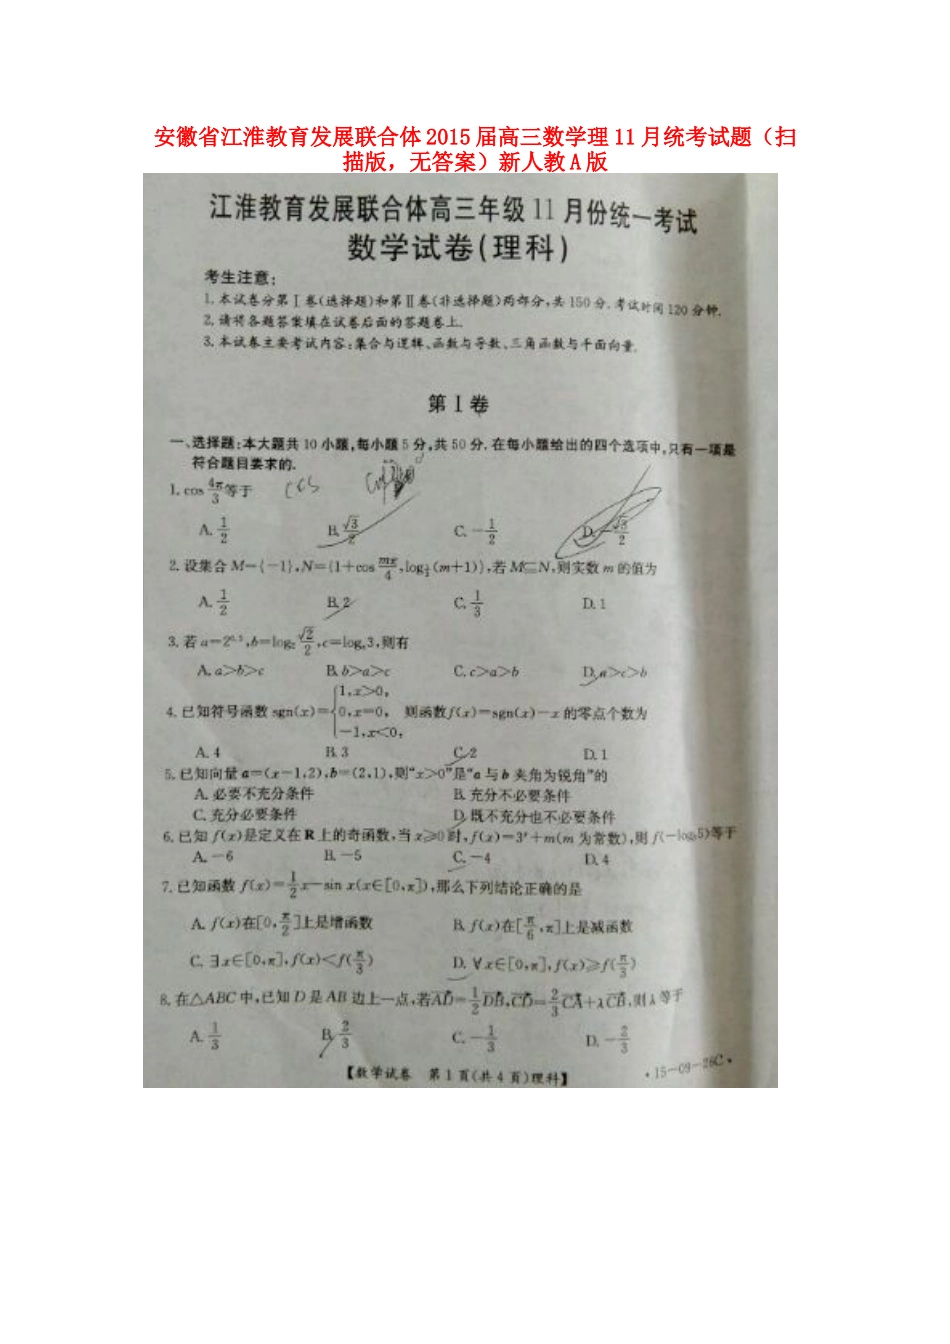 安徽省江淮教育发展联合体2015届高三数学理11月统考试题（扫
描版，无答案）新人教A版
江淮教育发展联合体高三年级11月份统一考试
数学试卷(理科)
考生注意:
1.本试卷分第Ⅰ卷(选择题)和第Ⅱ卷(非选择题)两部分,共150分.考试时间120分钟.
2.请将各题答案填在试卷后面的答题卷上.
3.本试卷主要考试内容:集合与逻辑、函数与导数、三角函数与平面向量.
第Ⅰ卷
一、选择题:本大题共10小题,每小题5分,共50分.在每小题给出的四个选项中,只有一项是
符合题目要求的.
1.cos 4π/3 等于
A. 1/2 B. √3/2 C. -1/2 D. -√3/2
2.设集合M={-1},N={1+cos mπ/4,log½(m+1)},若M⊆N,则实数m的值为
A. 1/2 B. 2 C. 1/3 D. 1
3.若a=2^0.5,b=log₂ √2/2,c=log₄3,则有
A. a>b>c B. b>a>c C. c>a>b D. a>c>b
4.已知符号函数sgn(x)={1,x>0, 0,x=0, -1,x<0, 则函数f(x)=sgn(x)-x的零点个数为
A. 4 B. 3 C. 2 D. 1
5.已知向量a=(x-1,2),b=(2,1),则“x>0”是“a与b夹角为锐角”的
A.必要不充分条件 B.充分不必要条件
C.充分必要条件 D.既不充分也不必要条件
6.已知f(x)是定义在R上的奇函数,当x≥0时,f(x)=3ˣ+m(m为常数),则f(-log₃5)等于
A. -6 B. -5 C. -4 D. 4
7.已知函数f(x)=1/2 x-sin x(x∈[0,π]),那么下列结论正确的是
A. f(x)在[0,π/2]上是增函数 B. f(x)在[π/6,π]上是减函数
C. ∃x∈[0,π],f(x)<f(π/3) D. ∀x∈[0,π],f(x)≥f(π/3)
8.在△ABC中,已知D是AB边上一点,若AD=1/2 DB,CD=2/3 CA+λCB,则λ等于
A. 1/3 B. 2/3 C. -1/3 D. -2/3
【数学试卷 第1页(共4页)理科】 ·15-09-26C·